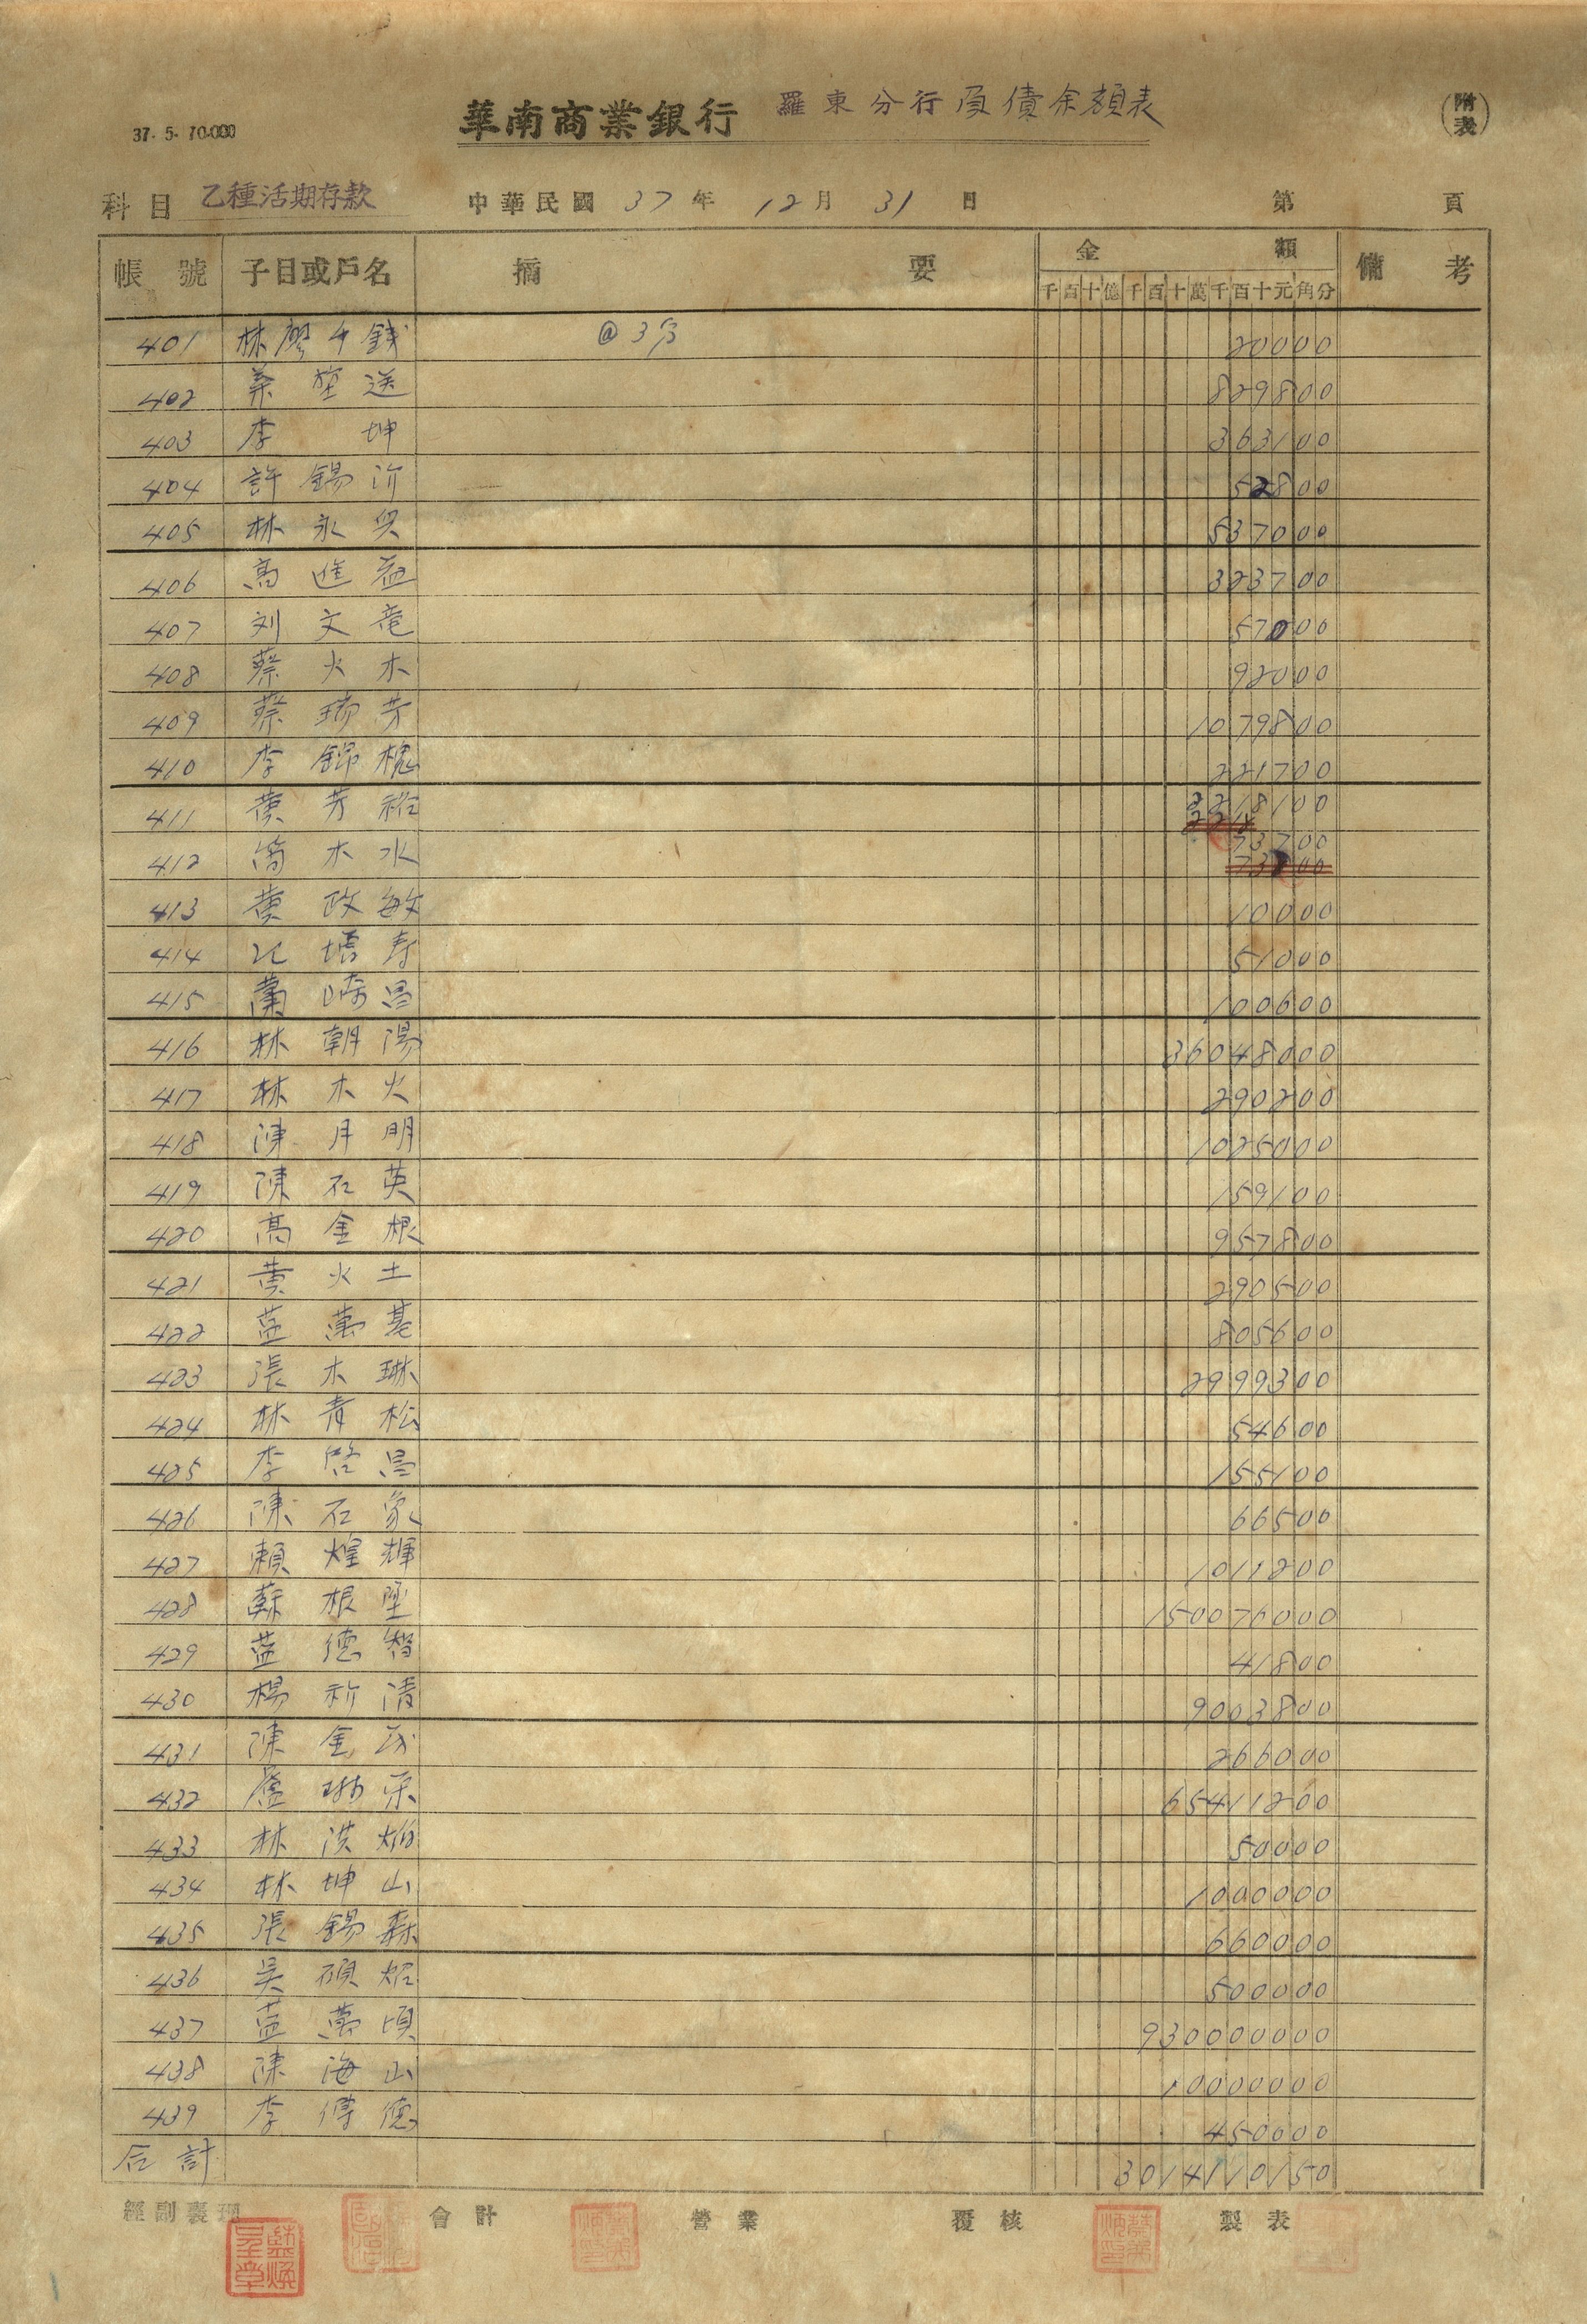 華南商業銀行 羅東分行負債余額表
(附表)
37. 5. 10.000
科目 乙種活期存款 中華民國 37 年 12 月 31 日 第 頁
帳號 子目或戶名 摘要 金額 備考
千百十億千百十萬千百十元角分
401 林廖千錢 @3分 20000
402 送 829800
403 李坤 363100
404 許錫沂 52800
405 林永興 537000
406 高進益 323700
407 刘文竜 57000
408 蔡火木 92000
409 蔡瑞芳 1079800
410 李錦槐 221700
411 黄芳 2218100
412 简木水 73700
413 黄政敏 10000
414 塘寿 51000
415 蘭崎昌 100600
416 林朝陽 36048000
417 林木火 290200
418 陳月明 1025000
419 陳石英 159100
420 高金根 957800
421 黄火土 290500
422 蓝萬基 805600
423 張木琳 2999300
424 林青松 54600
425 李啓昌 155100
426 陳石象 66500
427 賴煌輝 1011200
428 蘇根 150076000
429 蓝德智 41800
430 楊祈清 9003800
431 陳金茂 266000
432 蘆琳 65411200
433 林洪 50000
434 林坤山 1000000
435 張錫森 660000
436 吴碩 500000
437 蓝萬頃 930000000
438 陳海山 10000000
439 李傳德 450000
合計 3014110150
經副襄理 會計 營業 覆核 製表